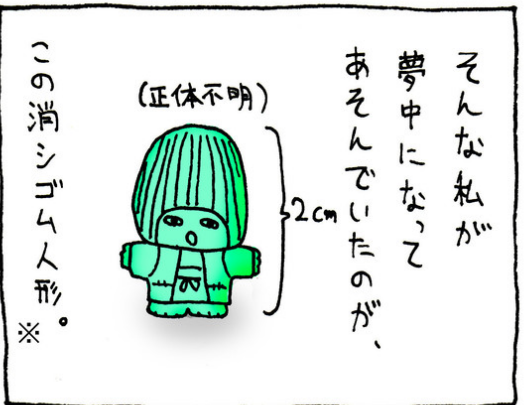 そんな私が
夢中になって
あそんでいたのが、
(正体不明)
2cm
この消シゴム人形。
※